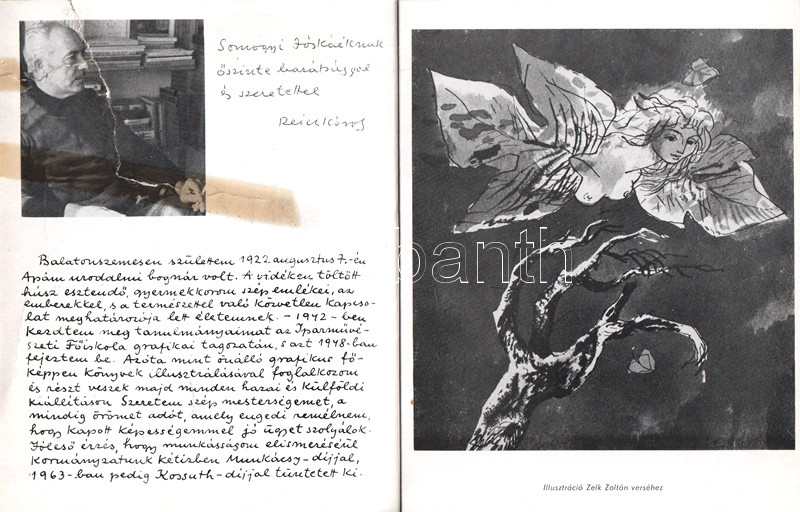 Somogyi Jóskáéknak
őszinte barátsággal
és szeretettel
Reich Károly
Balatonszemesen születtem 1922. augusztus 7.-én
Apám uradalmi bognár volt. A vidéken töltött
húsz esztendő, gyermekkorom szép emlékei, az
emberekkel, s a természettel való közvetlen kapcso-
lat meghatározója lett életemnek. – 1942-ben
kezdtem meg tanulmányaimat az Iparművé-
szeti Főiskola grafikai tagozatán, s azt 1948-ban
fejeztem be. Azóta mint önálló grafikus fő-
képpen könyvek illusztrálásával foglalkozom
és részt veszek majd minden hazai és külföldi
kiállításon. Szeretem szép mesterségemet, a
mindig örömet adót, amely engedi remélnem,
hogy kapott képességemmel jó ügyet szolgálok.
Jóleső érzés, hogy munkásságom elismeréséül
kormányzatunk kétízben Munkácsy-díjjal,
1963-ban pedig Kossuth-díjjal tüntetett ki.
banth
Illusztráció Zelk Zoltán verséhez